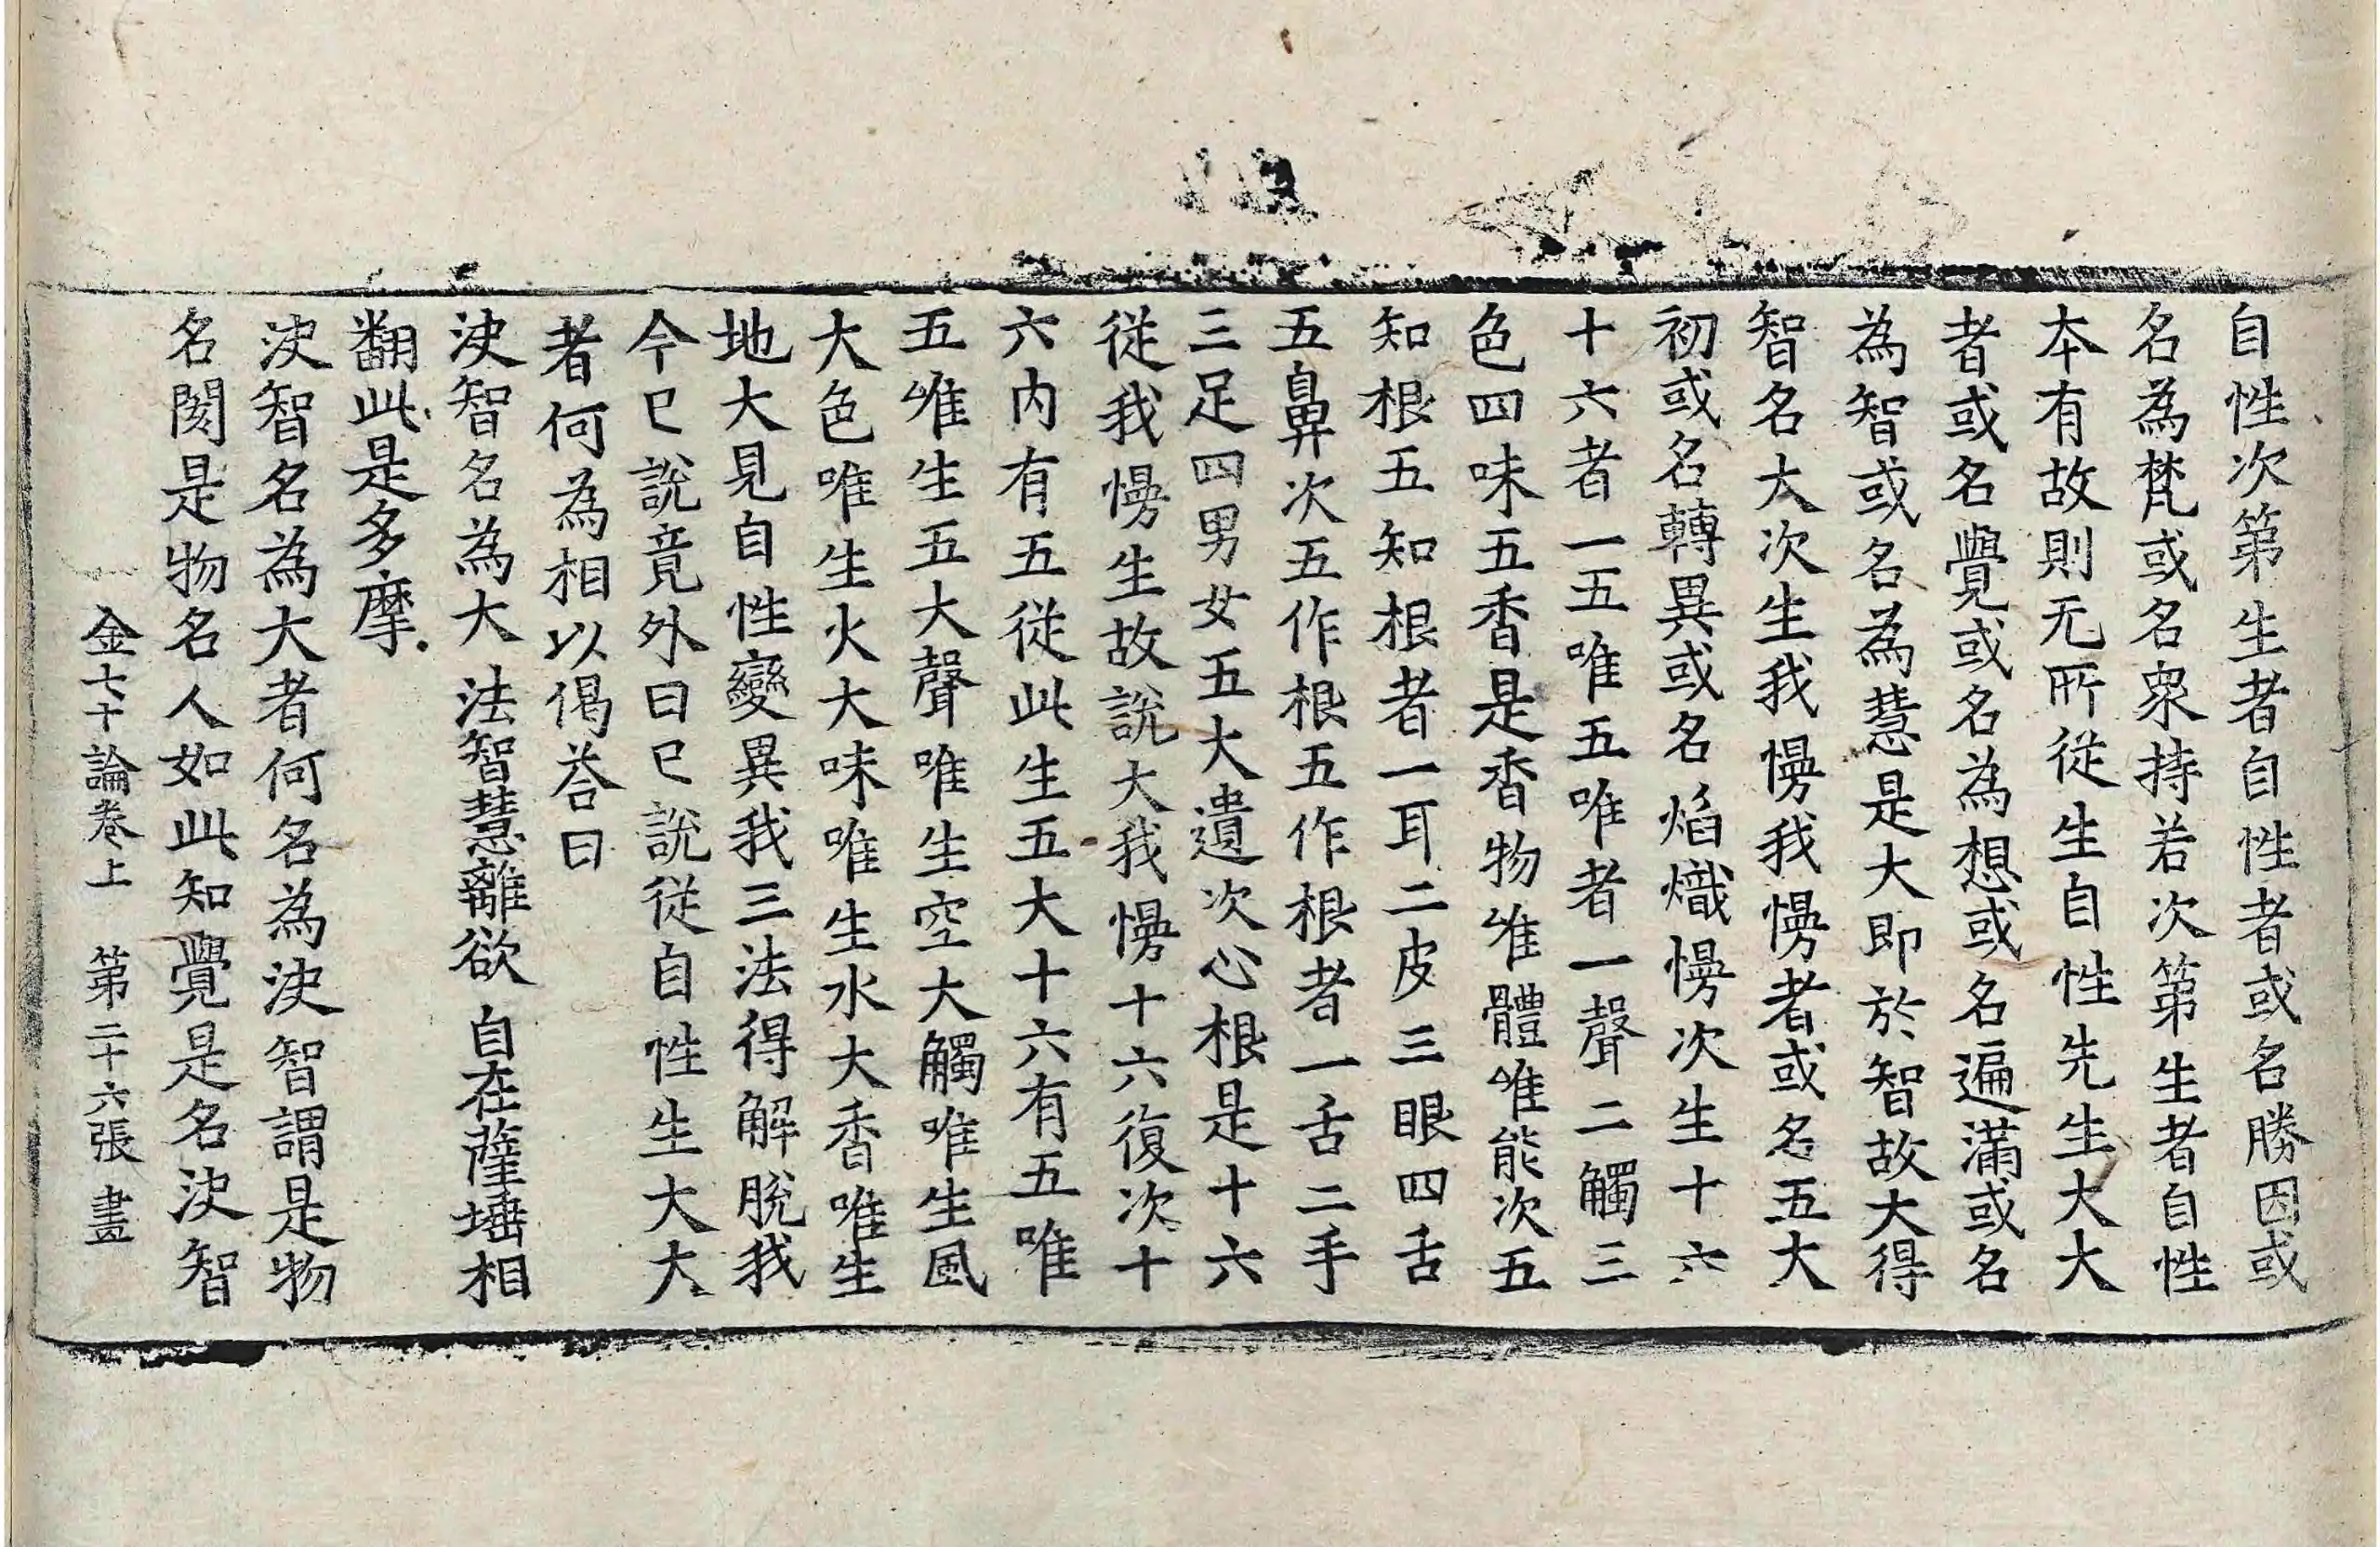 自性次第生者自性者或名勝因或
名為梵或名衆持若次第生者自性
夲有故則无所従生自性先生大大
者或名覺或名為想或名遍滿或名
為智或名為慧是大即於智故大得
智名大次生我慢我慢者或名五大
初或名轉異或名焰熾慢次生十六
十六者一五唯五唯者一聲二觸三
色四味五香是香物唯體唯能次五
知根五知根者一耳二皮三眼四舌
五鼻次五作根五作根者一舌二手
三足四男女五大遺次心根是十六
従我慢生故說大我慢十六復次十
六內有五従此生五大十六有五唯
五唯生五大聲唯生空大觸唯生風
大色唯生火大味唯生水大香唯生
地大見自性變異我三法得解脫我
今已說竟外曰已說従自性生大大
者何為相以偈荅曰
決智名為大 法智慧離欲 自在薩埵相
翻此是多摩
決智名為大者何名為決智謂是物
名閡是物名人如此知覺是名決智
金七十論卷上 第二十六張 畫